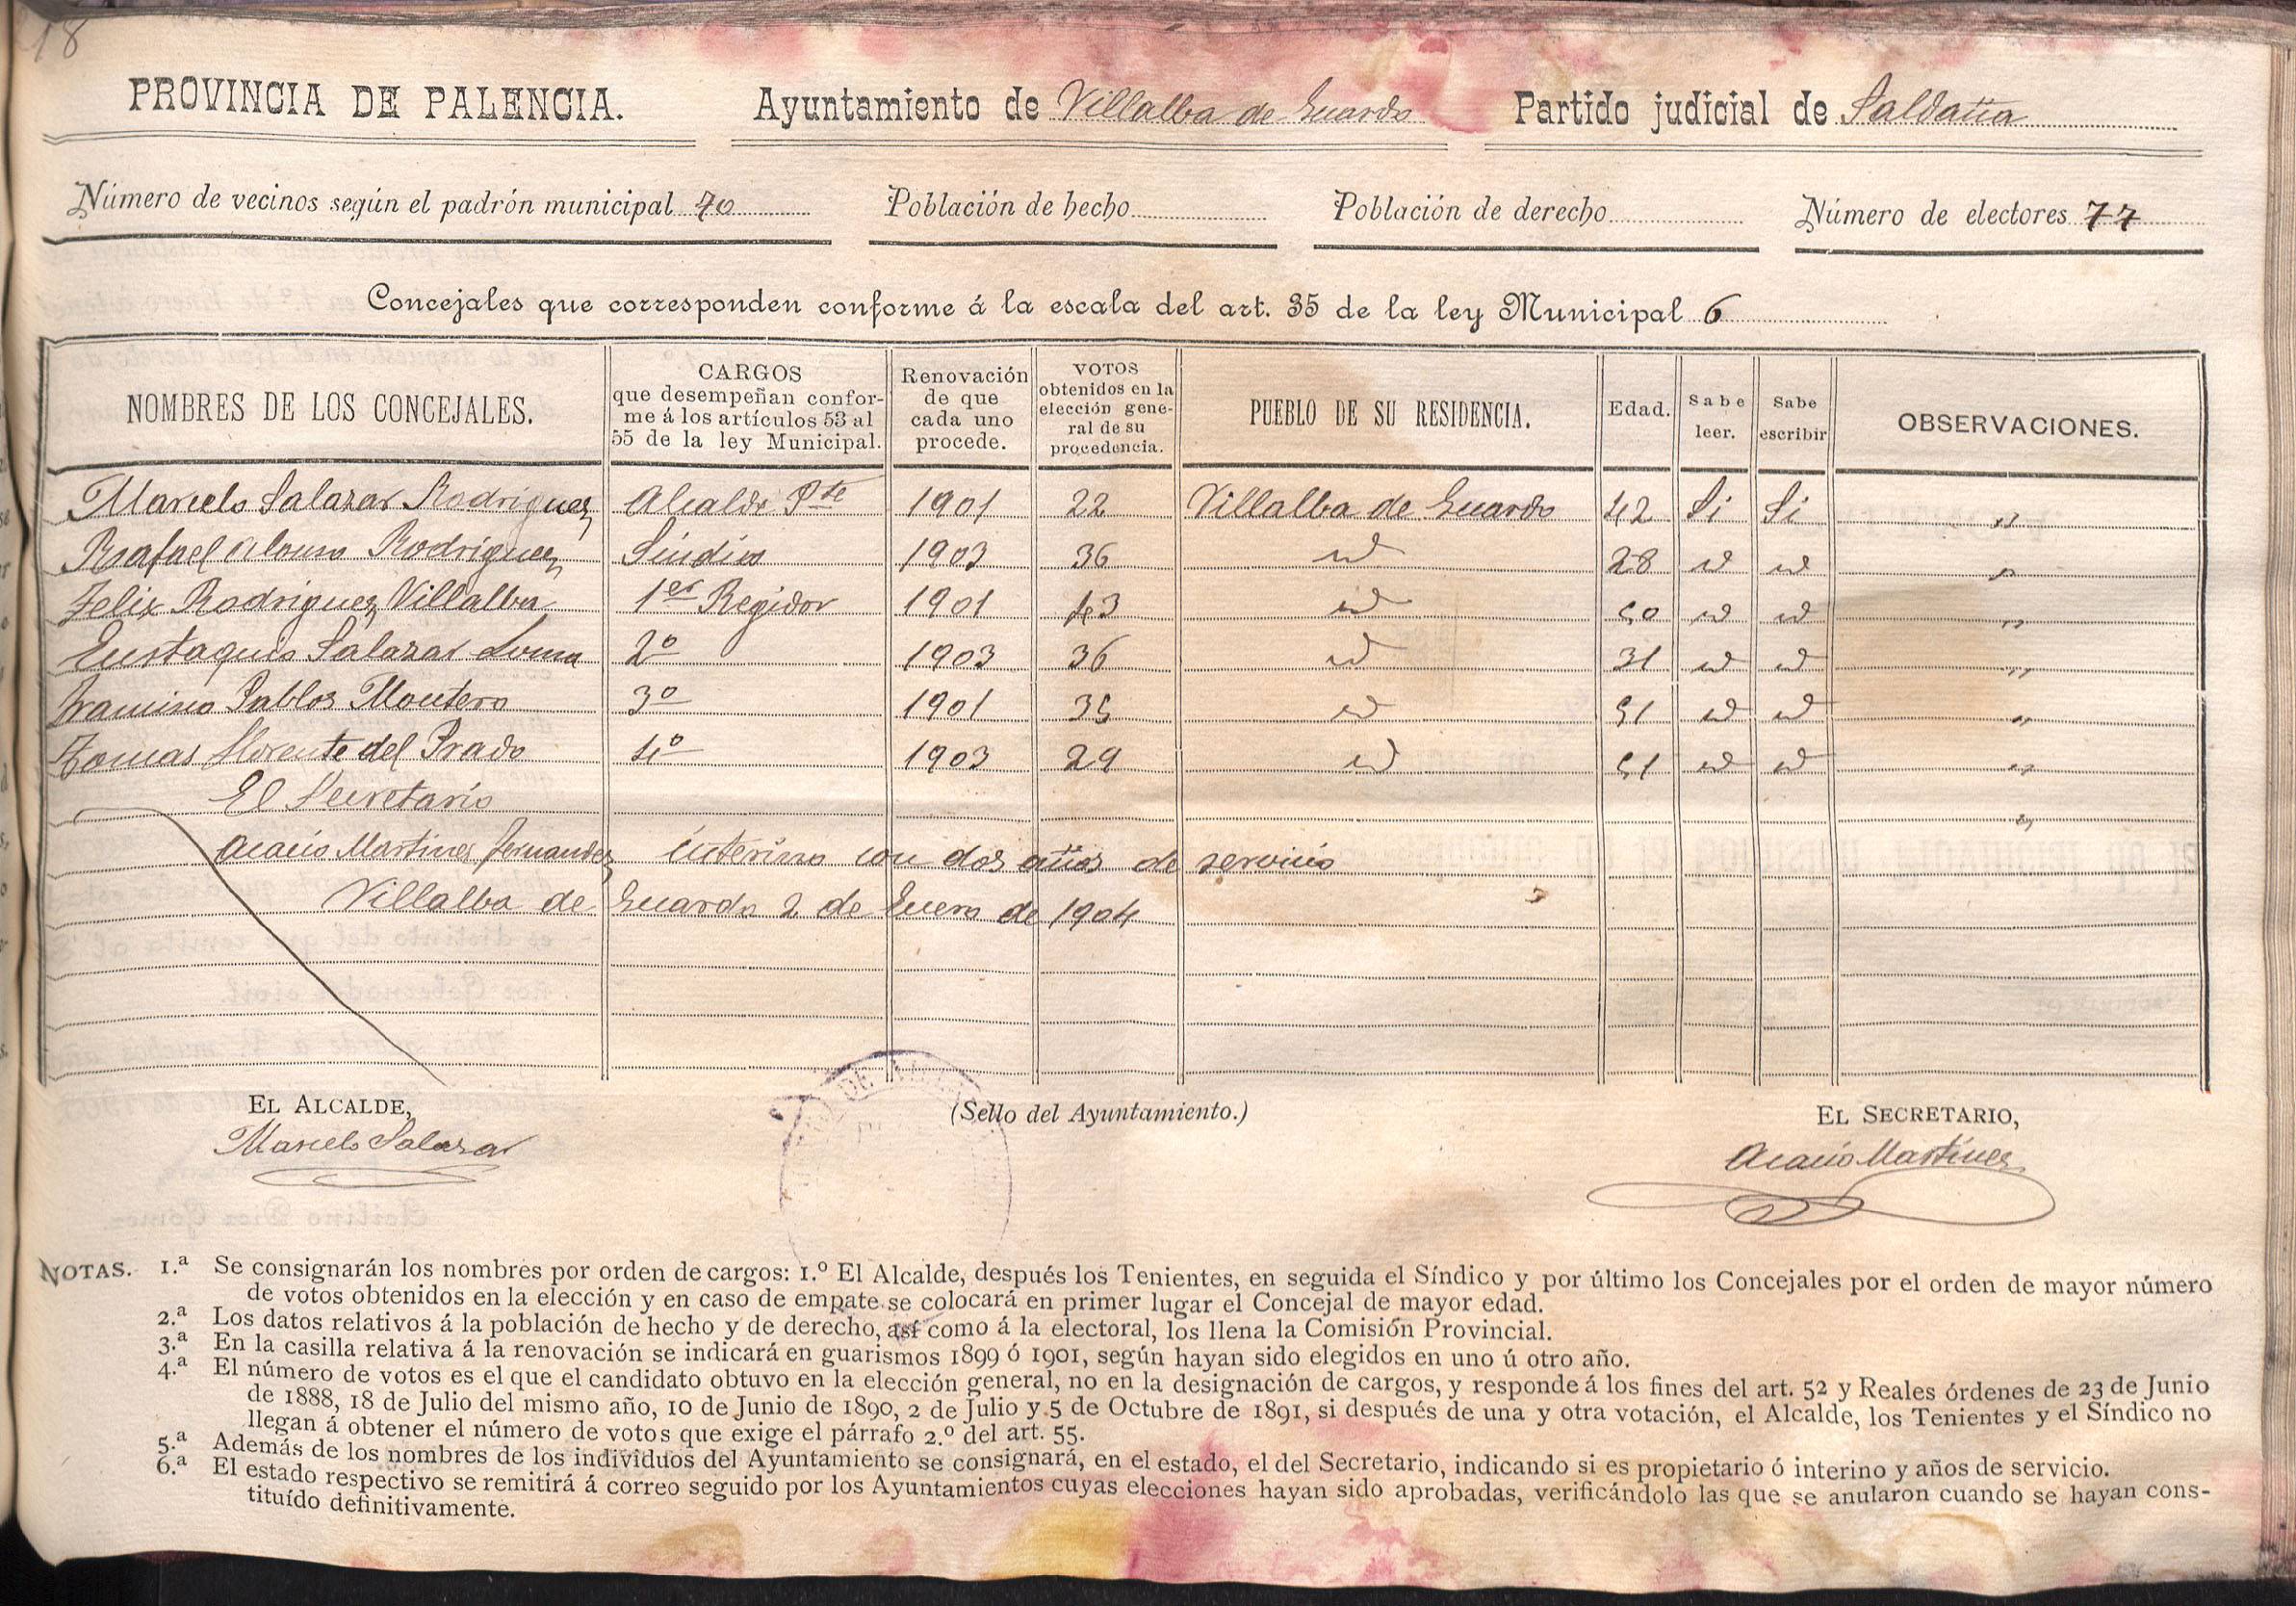 18
PROVINCIA DE PALENCIA. Ayuntamiento de Villalba de Guardo Partido judicial de Saldaña
Número de vecinos según el padrón municipal 70 Población de hecho Población de derecho Número de electores 77
Concejales que corresponden conforme á la escala del art. 35 de la ley Municipal 6
NOMBRES DE LOS CONCEJALES. CARGOS que desempeñan conforme á los artículos 53 al 55 de la ley Municipal. Renovación de que cada uno procede. VOTOS obtenidos en la elección general de su procedencia. PUEBLO DE SU RESIDENCIA. Edad. Sabe leer. Sabe escribir OBSERVACIONES.
Marcelo Salazar Rodriguez Alcalde Pte 1901 22 Villalba de Guardo 42 Si Si "
Rafael Alonso Rodriguez Síndico 1903 36 id 28 id id "
Felix Rodriguez Villalba 1er Regidor 1901 43 id 50 id id "
Eustaquio Salazar Loma 2º 1903 36 id 31 id id "
Francisco Pablos Montero 3º 1901 35 id 51 id id "
Tomas Llorente del Prado 4º 1903 29 id 51 id id "
El Secretario "
Acacio Martinez Fernandez interino con dos años de servicio
Villalba de Guardo 2 de Enero de 1904
EL ALCALDE, (Sello del Ayuntamiento.) EL SECRETARIO,
Marcelo Salazar Acacio Martinez
NOTAS. 1.ª Se consignarán los nombres por orden de cargos: 1.º El Alcalde, después los Tenientes, en seguida el Síndico y por último los Concejales por el orden de mayor número
de votos obtenidos en la elección y en caso de empate se colocará en primer lugar el Concejal de mayor edad.
2.ª Los datos relativos á la población de hecho y de derecho, así como á la electoral, los llena la Comisión Provincial.
3.ª En la casilla relativa á la renovación se indicará en guarismos 1899 ó 1901, según hayan sido elegidos en uno ú otro año.
4.ª El número de votos es el que el candidato obtuvo en la elección general, no en la designación de cargos, y responde á los fines del art. 52 y Reales órdenes de 23 de Junio
de 1888, 18 de Julio del mismo año, 10 de Junio de 1890, 2 de Julio y 5 de Octubre de 1891, si después de una y otra votación, el Alcalde, los Tenientes y el Síndico no
llegan á obtener el número de votos que exige el párrafo 2.º del art. 55.
5.ª Además de los nombres de los individuos del Ayuntamiento se consignará, en el estado, el del Secretario, indicando si es propietario ó interino y años de servicio.
6.ª El estado respectivo se remitirá á correo seguido por los Ayuntamientos cuyas elecciones hayan sido aprobadas, verificándolo las que se anularon cuando se hayan cons-
tituído definitivamente.